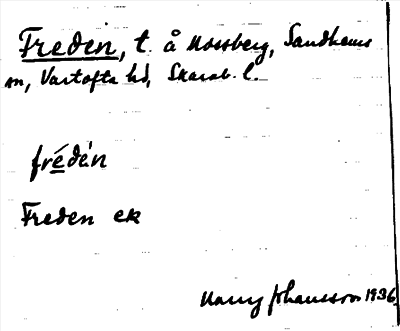 Freden, t. å Mossberg, Sandhems
sn, Vartofta hd, Skarab. l.
frédén
Freden ek
Harry Johansson 1936.